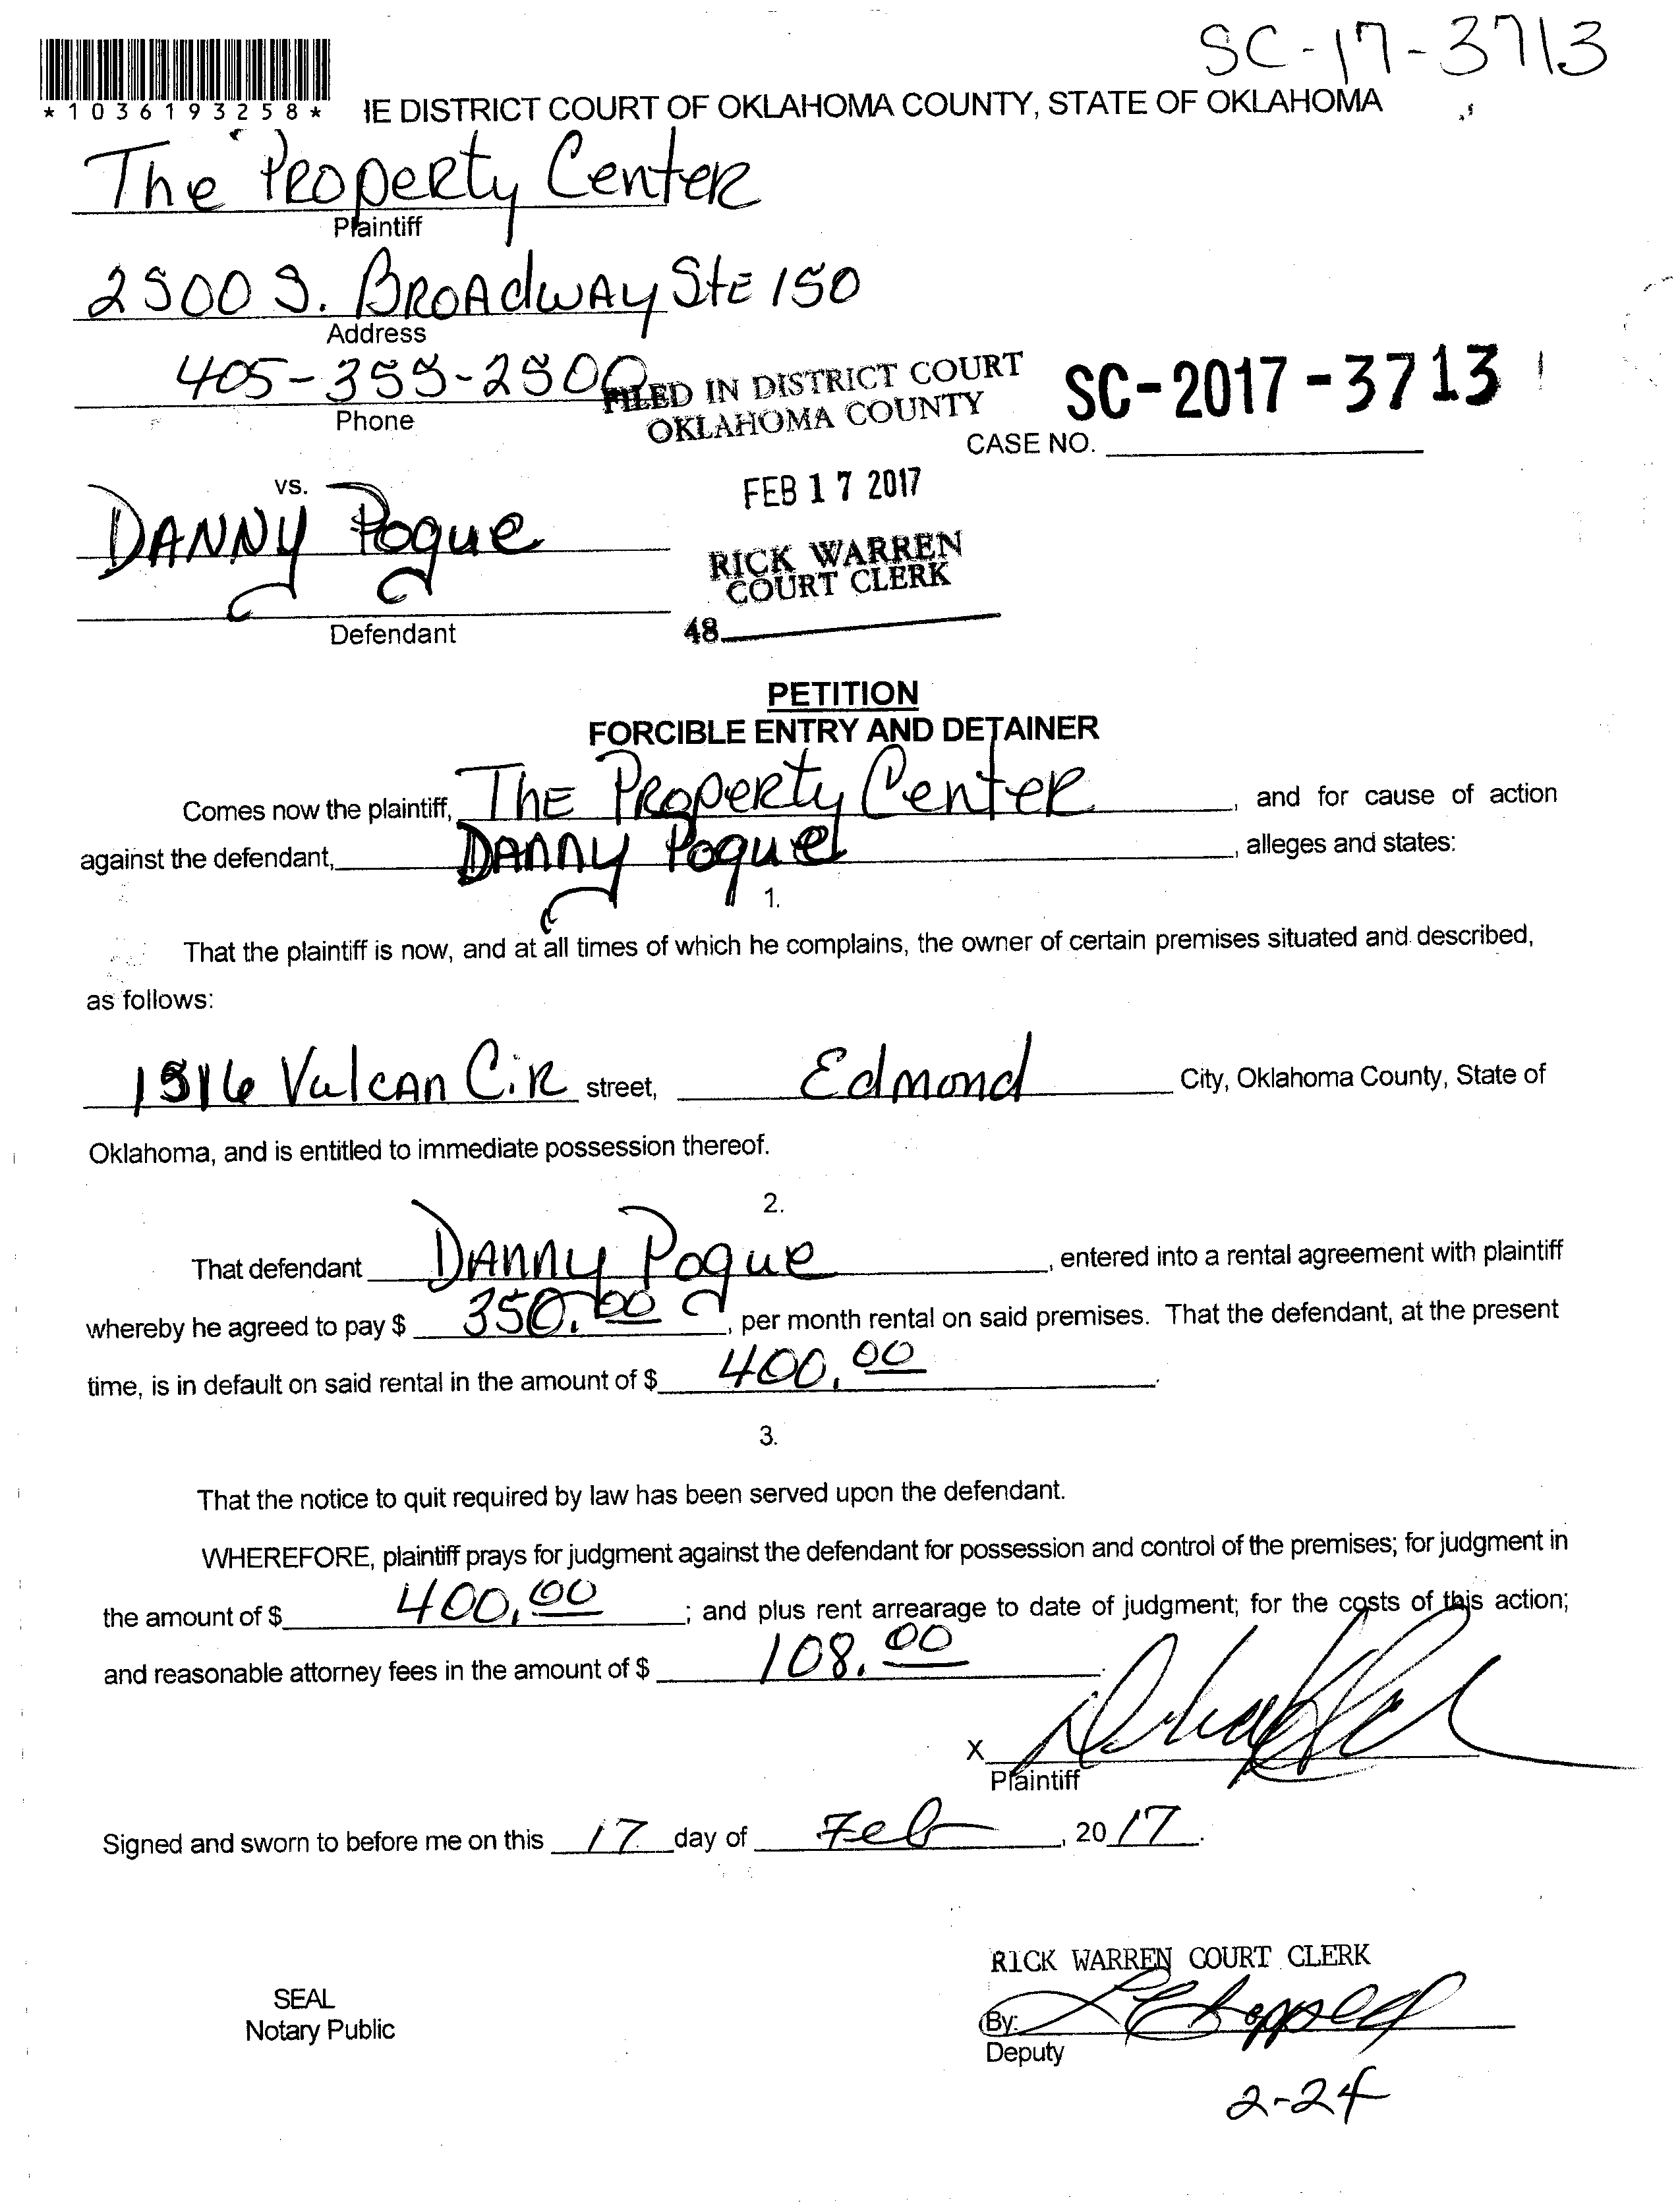 SC-17-3713
*1036193258*
IE DISTRICT COURT OF OKLAHOMA COUNTY, STATE OF OKLAHOMA
The Property Center
Plaintiff
2500 S. Broadway Ste 150
Address
405-355-2500
Phone
FILED IN DISTRICT COURT
OKLAHOMA COUNTY
SC-2017-3713
CASE NO.
FEB 17 2017
vs.
Danny Pogue
RICK WARREN
COURT CLERK
48
Defendant
PETITION
FORCIBLE ENTRY AND DETAINER
Comes now the plaintiff, The Property Center, and for cause of action
against the defendant, Danny Pogue, alleges and states:
1.
That the plaintiff is now, and at all times of which he complains, the owner of certain premises situated and described,
as follows:
1516 Vulcan Cir street, Edmond City, Oklahoma County, State of
Oklahoma, and is entitled to immediate possession thereof.
2.
That defendant Danny Pogue, entered into a rental agreement with plaintiff
whereby he agreed to pay $ 350.00, per month rental on said premises. That the defendant, at the present
time, is in default on said rental in the amount of $ 400.00.
3.
That the notice to quit required by law has been served upon the defendant.
WHEREFORE, plaintiff prays for judgment against the defendant for possession and control of the premises; for judgment in
the amount of $ 400.00; and plus rent arrearage to date of judgment; for the costs of this action;
and reasonable attorney fees in the amount of $ 108.00.
X
Plaintiff
Signed and sworn to before me on this 17 day of Feb, 2017.
RICK WARREN COURT CLERK
SEAL
Notary Public
By:
Deputy
2-24